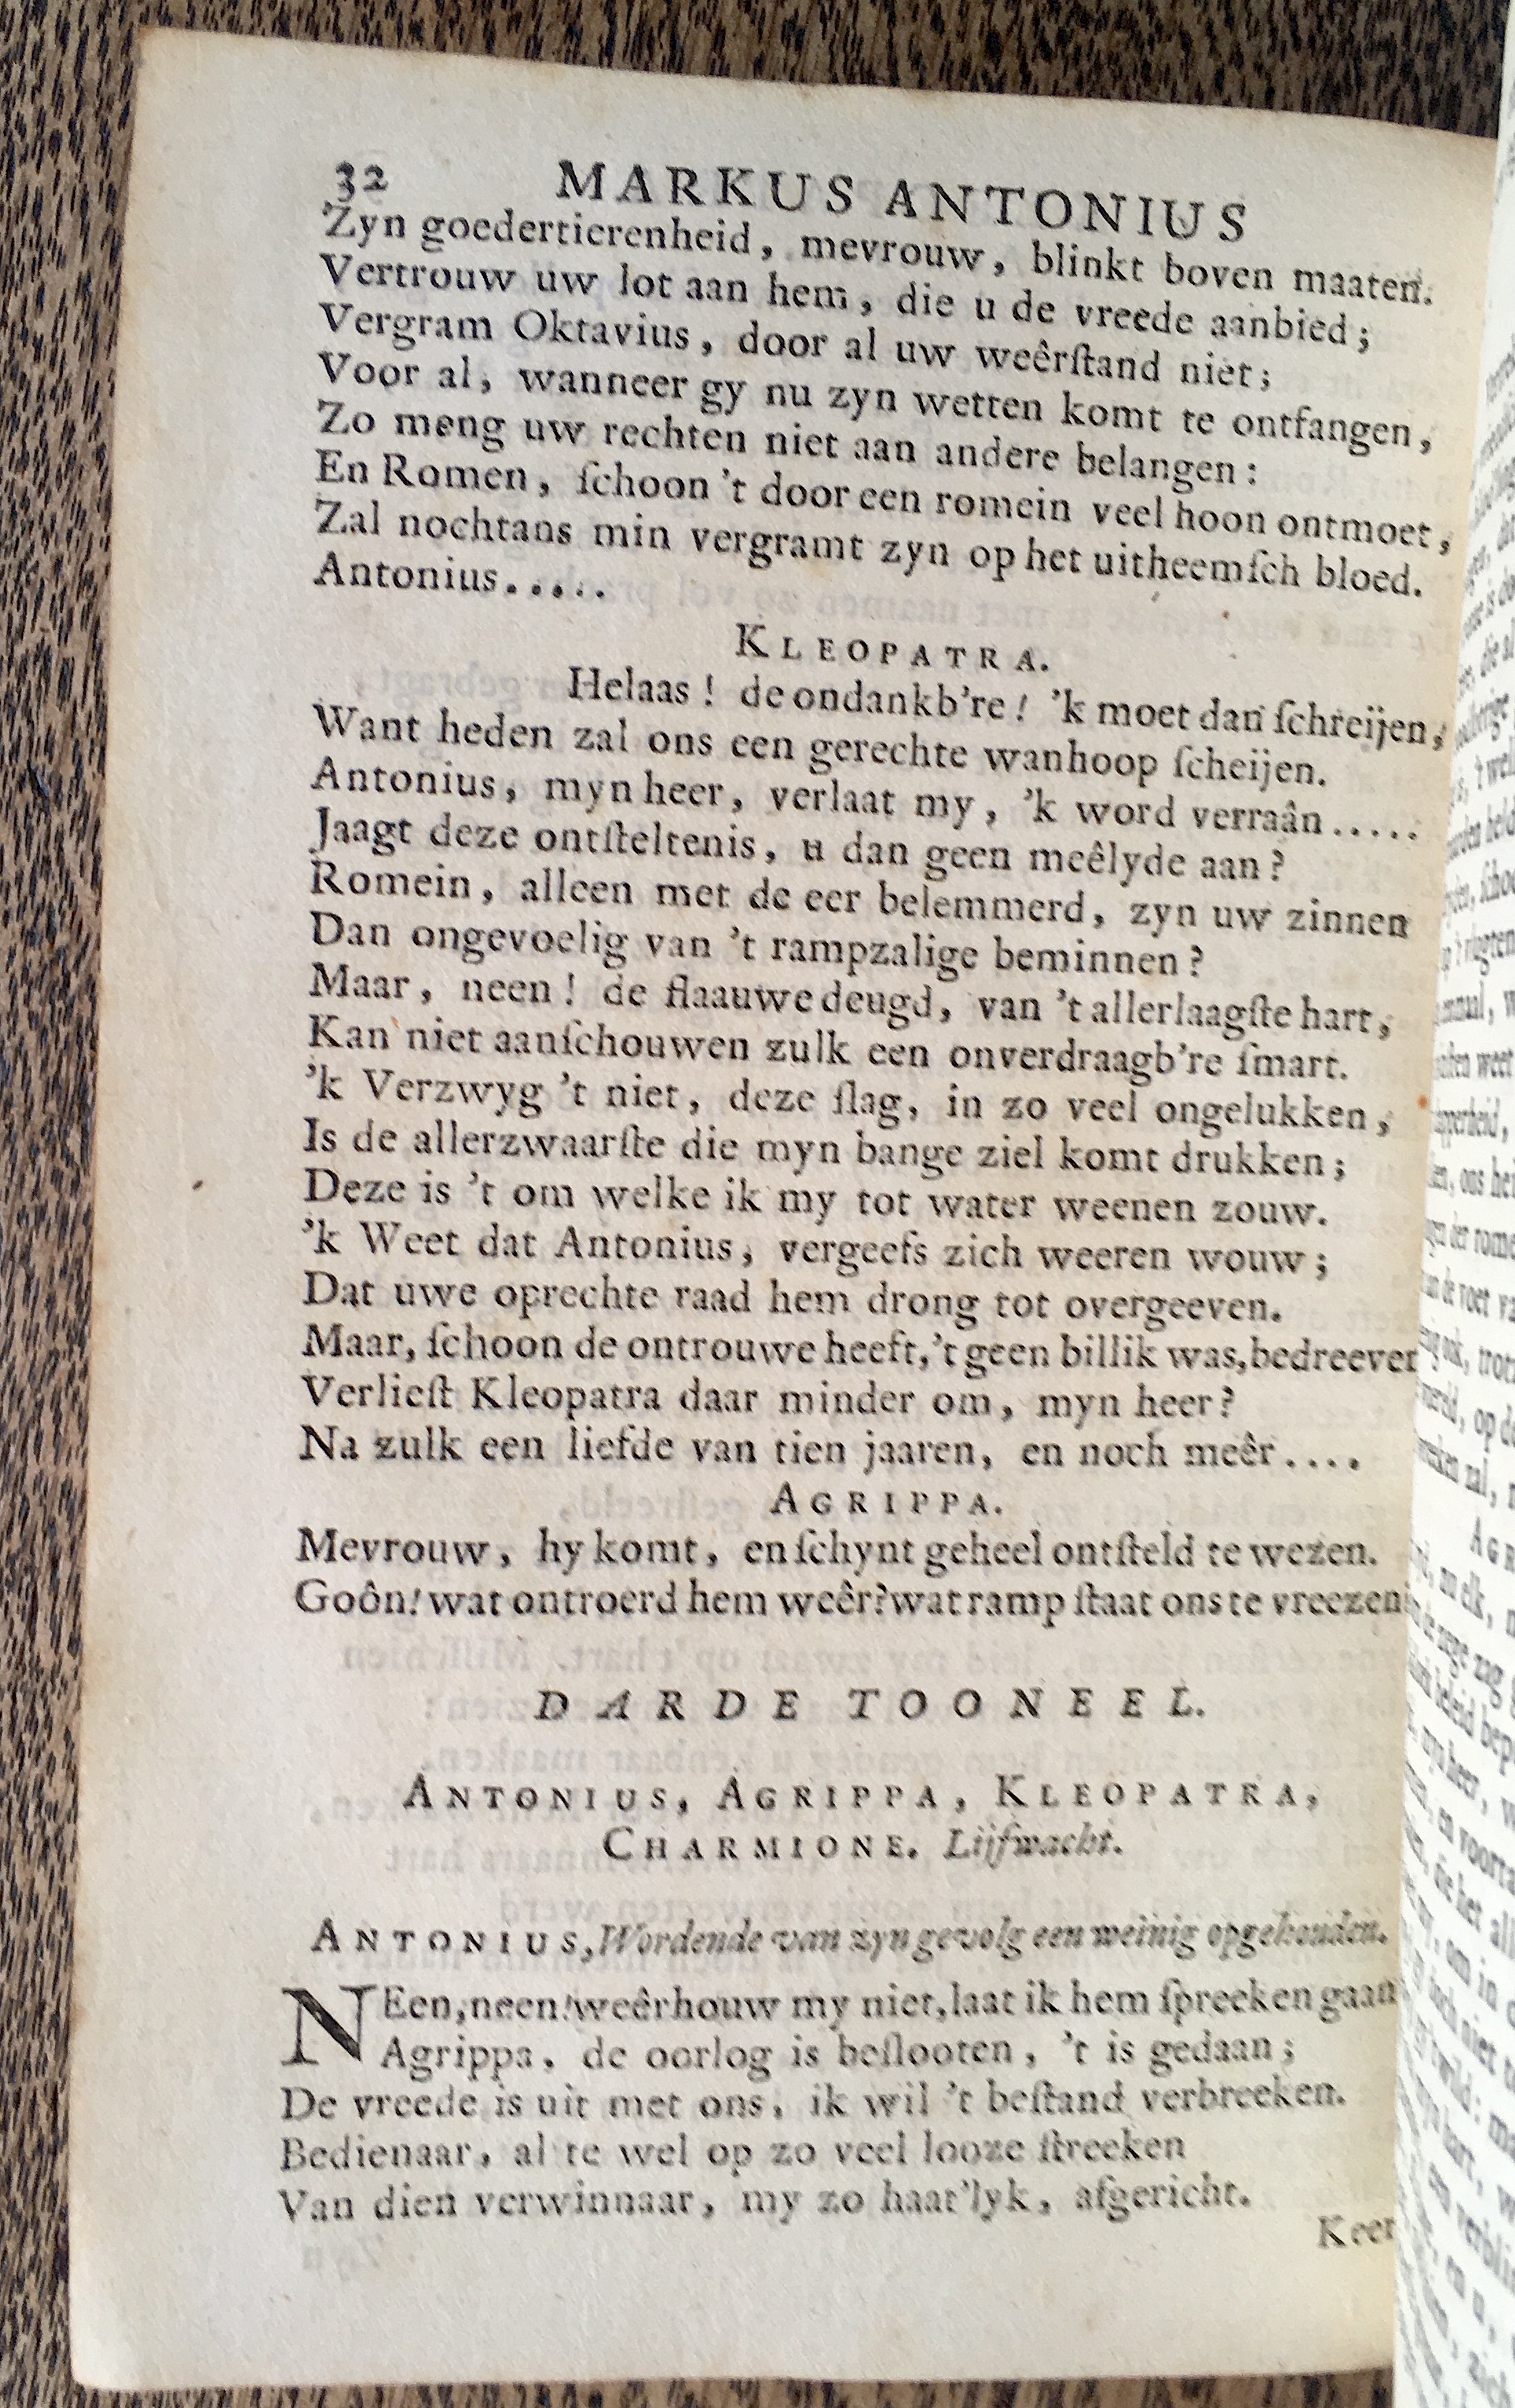 32 MARKUS ANTONIUS
Zyn goedertierenheid, mevrouw, blinkt boven maaten.
Vertrouw uw lot aan hem, die u de vreede aanbied;
Vergram Oktavius, door al uw weêrſtand niet;
Voor al, wanneer gy nu zyn wetten komt te ontfangen,
Zo meng uw rechten niet aan andere belangen:
En Romen, ſchoon 't door een romein veel hoon ontmoet,
Zal nochtans min vergramt zyn op het uitheemſch bloed.
Antonius.....
KLEOPATRA.
Helaas! de ondankb're! 'k moet dan ſchreijen,
Want heden zal ons een gerechte wanhoop ſcheijen.
Antonius, myn heer, verlaat my, 'k word verraân.....
Jaagt deze ontſteltenis, u dan geen meêlyde aan?
Romein, alleen met de eer belemmerd, zyn uw zinnen
Dan ongevoelig van 't rampzalige beminnen?
Maar, neen! de flaauwe deugd, van 't allerlaagſte hart,
Kan niet aanſchouwen zulk een onverdraagb're ſmart.
'k Verzwyg 't niet, deze ſlag, in zo veel ongelukken,
Is de allerzwaarſte die myn bange ziel komt drukken;
Deze is 't om welke ik my tot water weenen zouw.
'k Weet dat Antonius, vergeefs zich weeren wouw;
Dat uwe oprechte raad hem drong tot overgeeven.
Maar, ſchoon de ontrouwe heeft, 't geen billik was, bedreeven
Verlieſt Kleopatra daar minder om, myn heer?
Na zulk een liefde van tien jaaren, en noch meêr....
AGRIPPA.
Mevrouw, hy komt, en ſchynt geheel ontſteld te wezen.
Goôn! wat ontroerd hem weêr? wat ramp ſtaat ons te vreezen
DARDE TOONEEL.
ANTONIUS, AGRIPPA, KLEOPATRA,
CHARMIONE. Lijfwacht.
ANTONIUS, Wordende van zyn gevolg een weinig opgehouden.
NEen, neen! weêrhouw my niet, laat ik hem ſpreeken gaan
Agrippa, de oorlog is beſlooten, 't is gedaan;
De vreede is uit met ons, ik wil 't beſtand verbreeken.
Bedienaar, al te wel op zo veel looze ſtreeken
Van dien verwinnaar, my zo haat'lyk, afgericht.
Keer